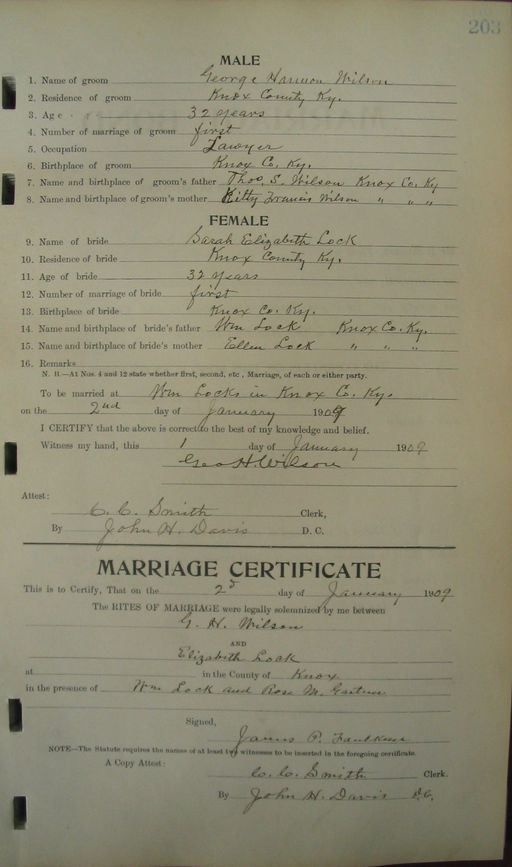 203
MALE
1. Name of groom George Harmon Wilson
2. Residence of groom Knox County Ky.
3. Age 32 years
4. Number of marriage of groom first
5. Occupation Lawyer
6. Birthplace of groom Knox Co. Ky.
7. Name and birthplace of groom's father Thos. S. Wilson Knox Co. Ky
8. Name and birthplace of groom's mother Kitty Francis Wilson " " "
FEMALE
9. Name of bride Sarah Elizabeth Lock
10. Residence of bride Knox County Ky.
11. Age of bride 32 years
12. Number of marriage of bride first
13. Birthplace of bride Knox Co. Ky.
14. Name and birthplace of bride's father Wm Lock Knox Co. Ky.
15. Name and birthplace of bride's mother Ellen Lock " " "
16. Remarks
N. B.—At Nos. 4 and 12 state whether first, second, etc., Marriage, of each or either party.
To be married at Wm Locks in Knox Co. Ky.
on the 2nd day of January 1909
I CERTIFY that the above is correct to the best of my knowledge and belief.
Witness my hand, this 1 day of January 1909
Geo H. Wilson
Attest:
C. C. Smith Clerk,
By John H. Davis D. C.
MARRIAGE CERTIFICATE
This is to Certify, That on the 2d day of January 1909
The RITES OF MARRIAGE were legally solemnized by me between
G. H. Wilson
AND
Elizabeth Lock
at in the County of Knox
in the presence of Wm Lock and Rose M.
Signed,
James P. Faulkner
NOTE—The Statute requires the names of at least two witnesses to be inserted in the foregoing certificate.
A Copy Attest:
C. C. Smith Clerk.
By John H. Davis D.C.